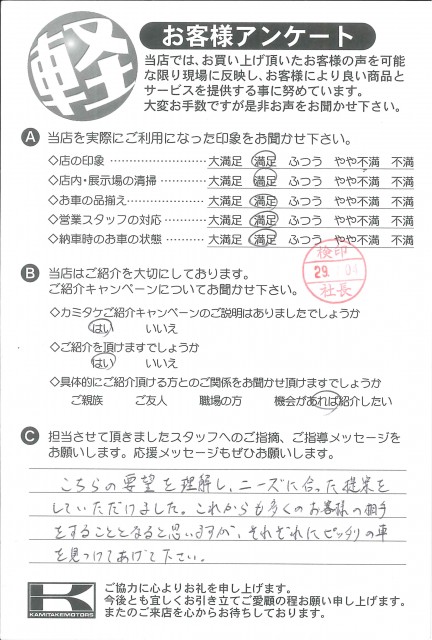 軽
お客様アンケート
当店では、お買い上げ頂いたお客様の声を可能
な限り現場に反映し、お客様により良い商品と
サービスを提供する事に努めています。
大変お手数ですが是非お声をお聞かせ下さい。
A 当店を実際にご利用になった印象をお聞かせ下さい。
◇店の印象 ………………… 大満足 満足 ふつう やや不満 不満
◇店内・展示場の清掃 ………… 大満足 満足 ふつう やや不満 不満
◇お車の品揃え ……………… 大満足 満足 ふつう やや不満 不満
◇営業スタッフの対応 ………… 大満足 満足 ふつう やや不満 不満
◇納車時のお車の状態 ………… 大満足 満足 ふつう やや不満 不満
検印
29. 04
社長
B 当店はご紹介を大切にしております。
ご紹介キャンペーンについてお聞かせ下さい。
◇カミタケご紹介キャンペーンのご説明はありましたでしょうか
はい いいえ
◇ご紹介を頂けますでしょうか
はい いいえ
◇具体的にご紹介頂ける方とのご関係をお聞かせ頂けますでしょうか
ご親族 ご友人 職場の方 機会があれば紹介したい
C 担当させて頂きましたスタッフへのご指摘、ご指導メッセージを
お願いします。応援メッセージもぜひお願いします。
こちらの要望を理解し、ニーズに合った提案を
していただけました。これからも多くのお客様の相手
をすることとなると思いますが、それぞれにピッタリの車
を見つけてあげて下さい。
K
KAMITAKEMOTORS
ご協力に心よりお礼を申し上げます。
今後とも宜しくお引き立てご愛顧の程お願い申し上げます。
またのご来店を心からお待ちしております。